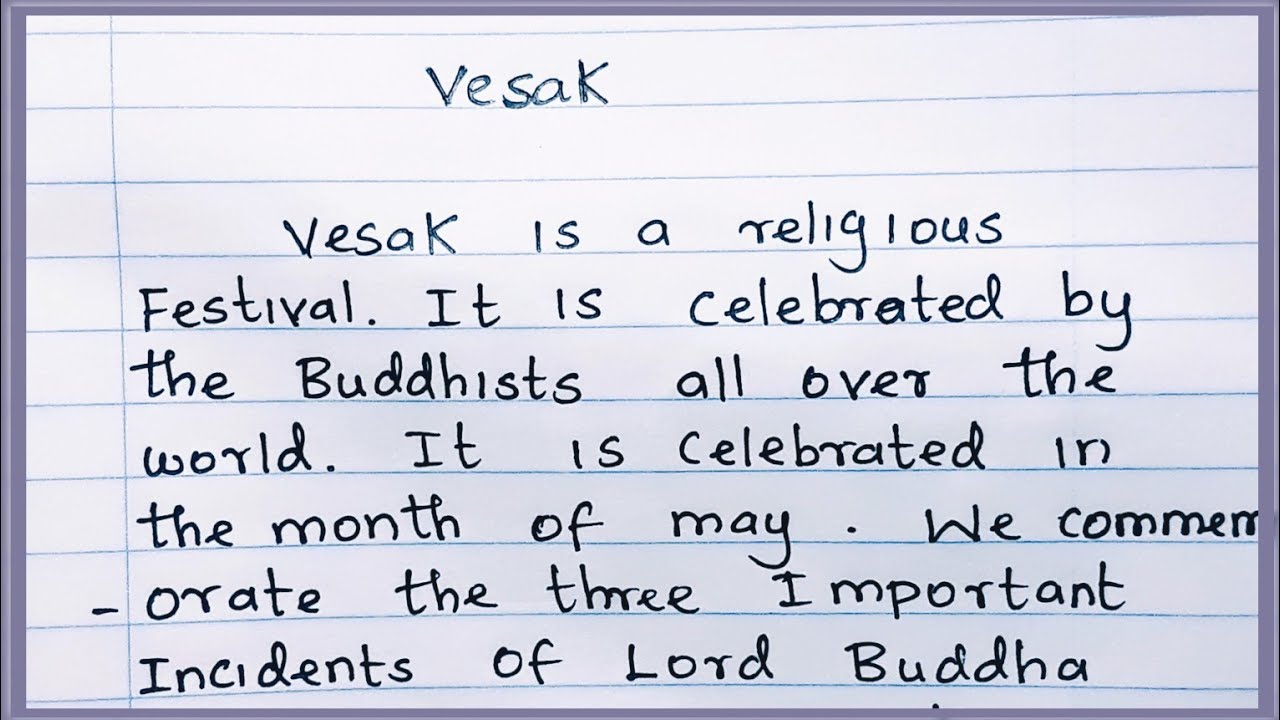 Vesak
Vesak is a religious
Festival. It is celebrated by
the Buddhists all over the
world. It is celebrated in
the month of may . We commem
- orate the three Important
Incidents of Lord Buddha